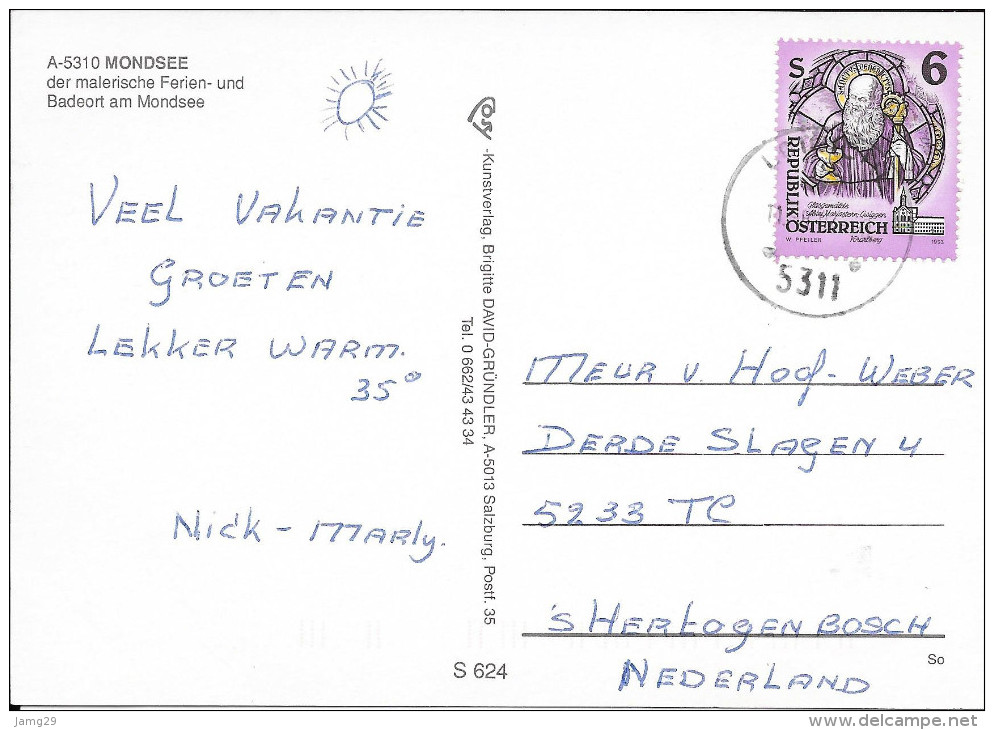 A-5310 MONDSEE
der malerische Ferien- und
Badeort am Mondsee
VEEL VAKANTIE
GROETEN
LEKKER WARM.
35°
NICK - MARLY.
Cosy -Kunstverlag, Brigitte DAVID-GRÜNDLER, A-5013 Salzburg, Postf. 35
Tel. 0 662/43 43 34
S 624
S 6
REPUBLIK
ÖSTERREICH
W. PFEILER
1993
5311
MEUR V. HOOF-WEBER
DERDE SLAGEN 4
5233 TC
'S HERTOGENBOSCH
So
NEDERLAND
Jamg29
www.delcampe.net